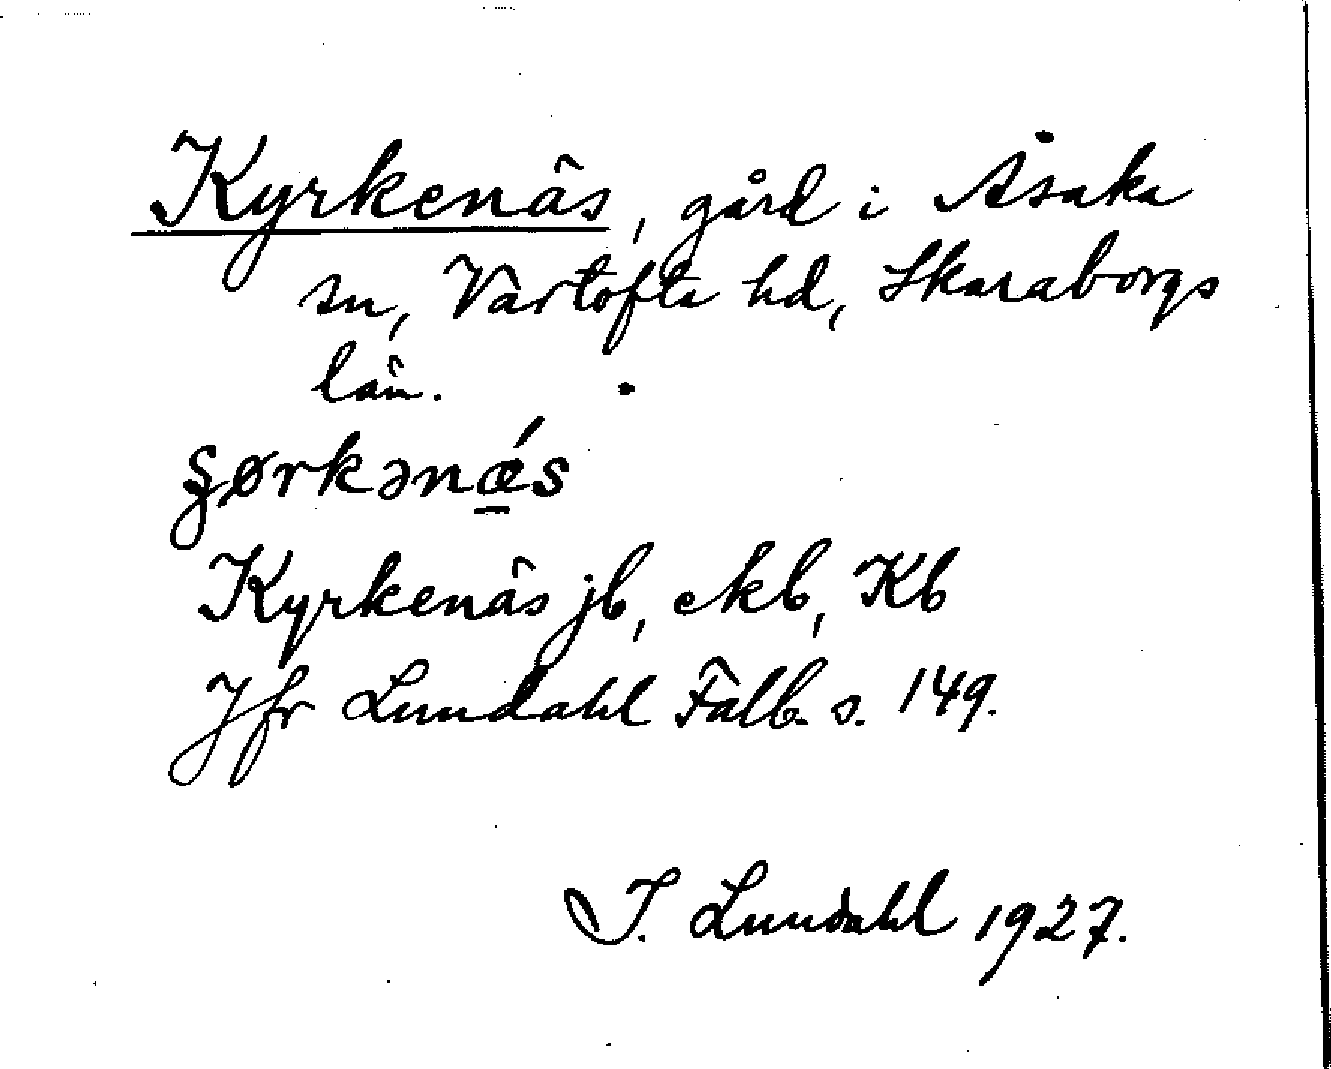 Kyrkenäs, gård i Åsaka
sn, Vartofta hd, Skaraborgs
län.
ʂørkənǽs
Kyrkenäs jb, ekb, Kb
Jfr Lundahl Falb. s. 149.
I. Lundahl 1927.